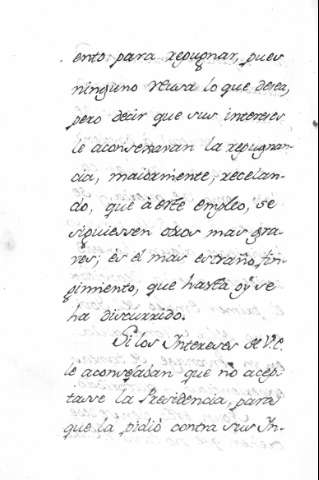 ento para repugnar, pues
ninguno reusa lo que desea,
pero decir que sus intereses
le aconsejaran la repugnan-
cia, maiormente, recelan-
do, que à este empleo, se
siguiessen otros mas gra-
ves; es el mas estraño fin-
gimiento, que hasta oy se
ha discurrido.
Si los Intereses de V.e.
le aconsejasan que no acep-
tasse la Presidencia, para
que la pidiò contra sus In-